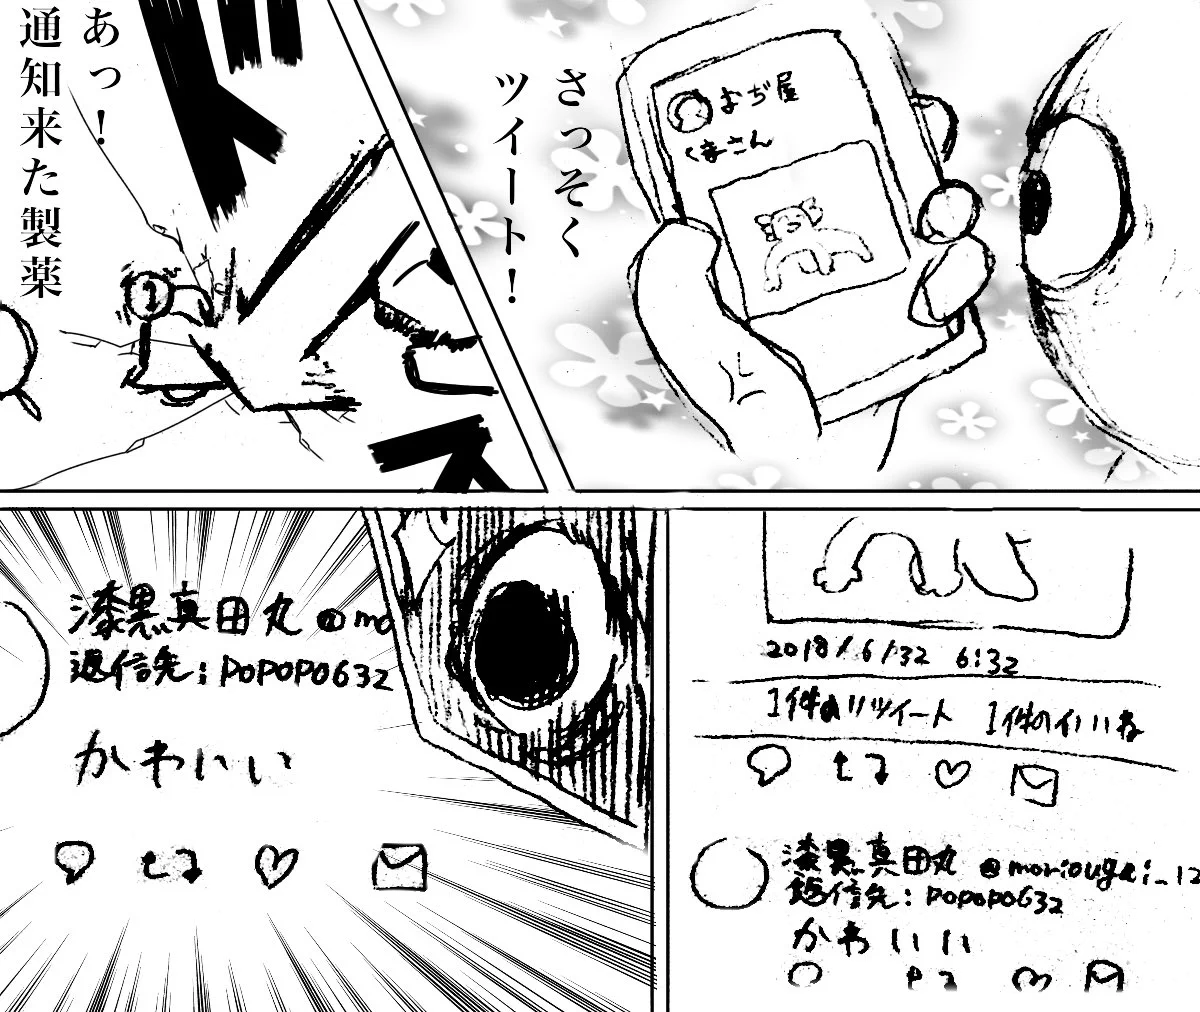 さっそく
ツイート！
おぢ屋
くまさん
あっ！
通知来た製薬
ドドドドス
1
2018/6/32 6:32
1件のリツイート 1件のいいね
漆黒真田丸 @moriougai_12
返信先：popopo632
かわいい
漆黒真田丸 @mo
返信先：popopo632
かわいい